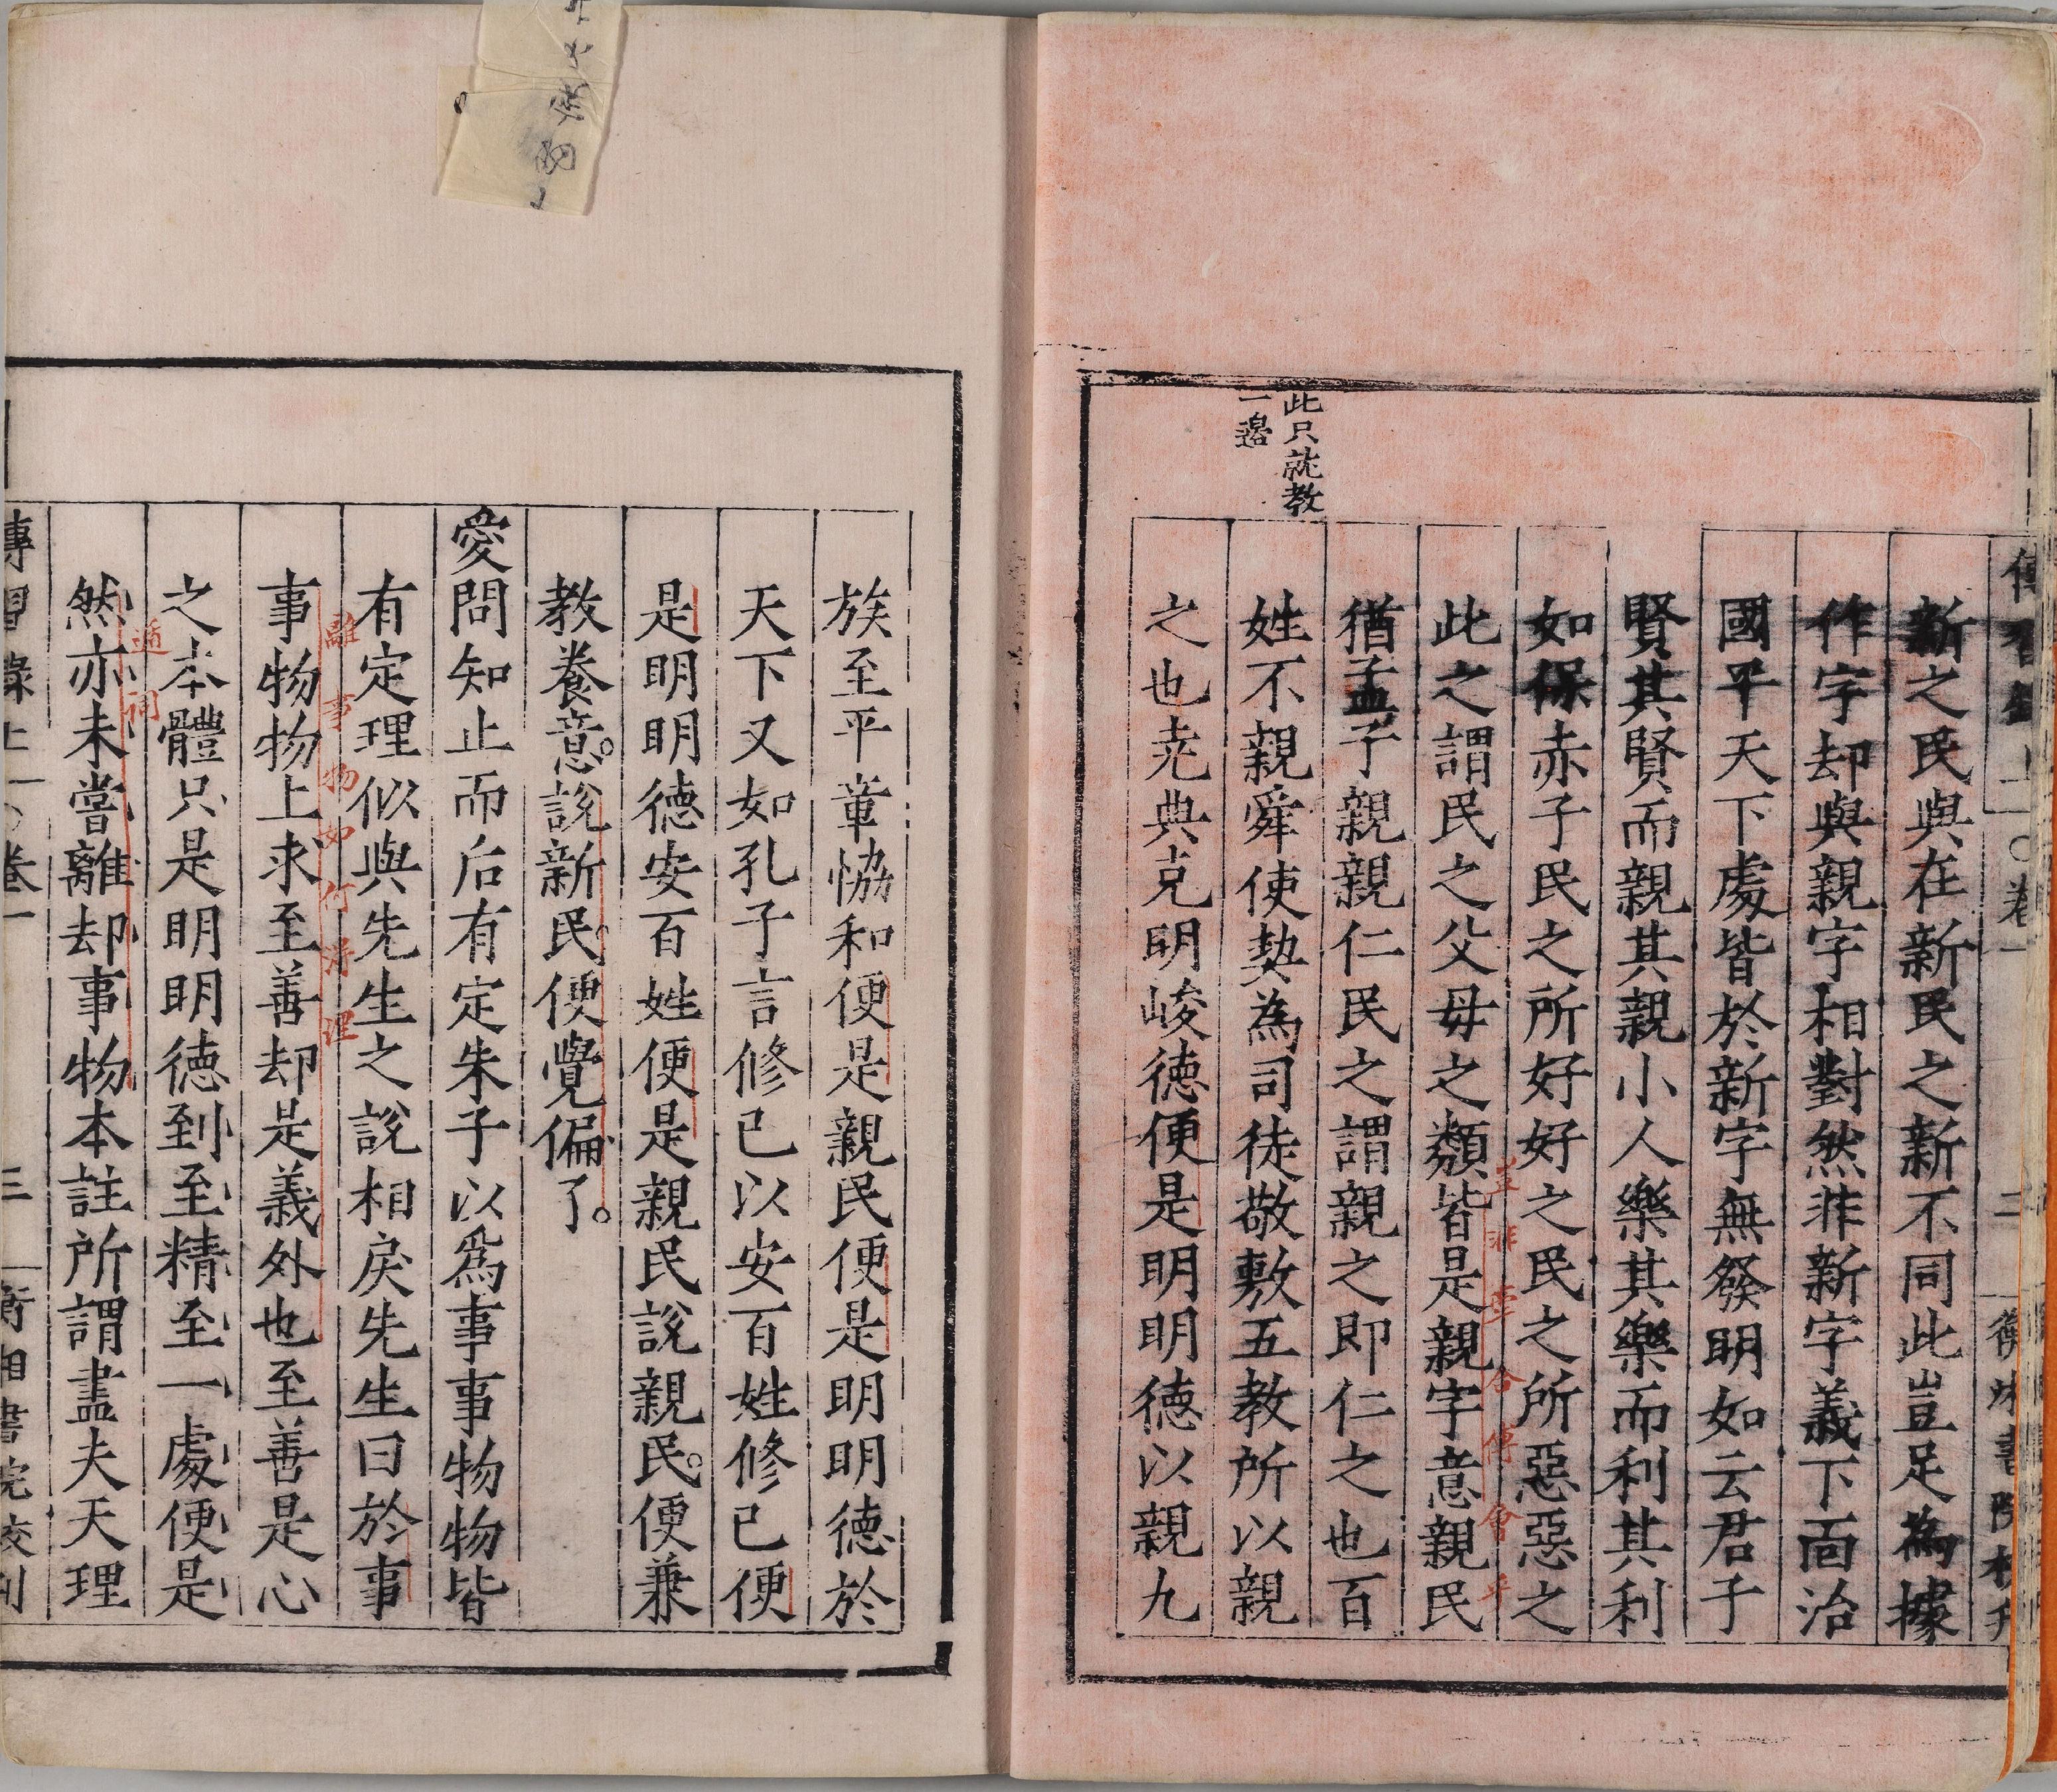 新之民與在新民之新不同此豈足為據
作字却與親字相對然非新字義下面治
國平天下處皆於新字無發明如云君子
賢其賢而親其親小人樂其樂而利其利
如保赤子民之所好好之民之所惡惡之
此之謂民之父母之類皆是親字意親民
猶孟子親親仁民之謂親之即仁之也百
此只就教
一邊
姓不親舜使契為司徒敬敷五教所以親
之也尭典克明峻徳便是明明徳以親九
族至平章恊和便是親民便是明明徳於
天下又如孔子言修己以安百姓修己便
是明明徳安百姓便是親民說親民便兼
教養意說新民便覺偏了
愛問知止而后有定朱子以爲事事物物皆
有定理似與先生之說相戾先生曰於事
離事物如何得理
事物物上求至善却是義外也至善是心
之本體只是明明徳到至精至一處便是
遁詞
然亦未嘗離却事物本註所謂盡夫天理
傳習錄上 〇卷一 三